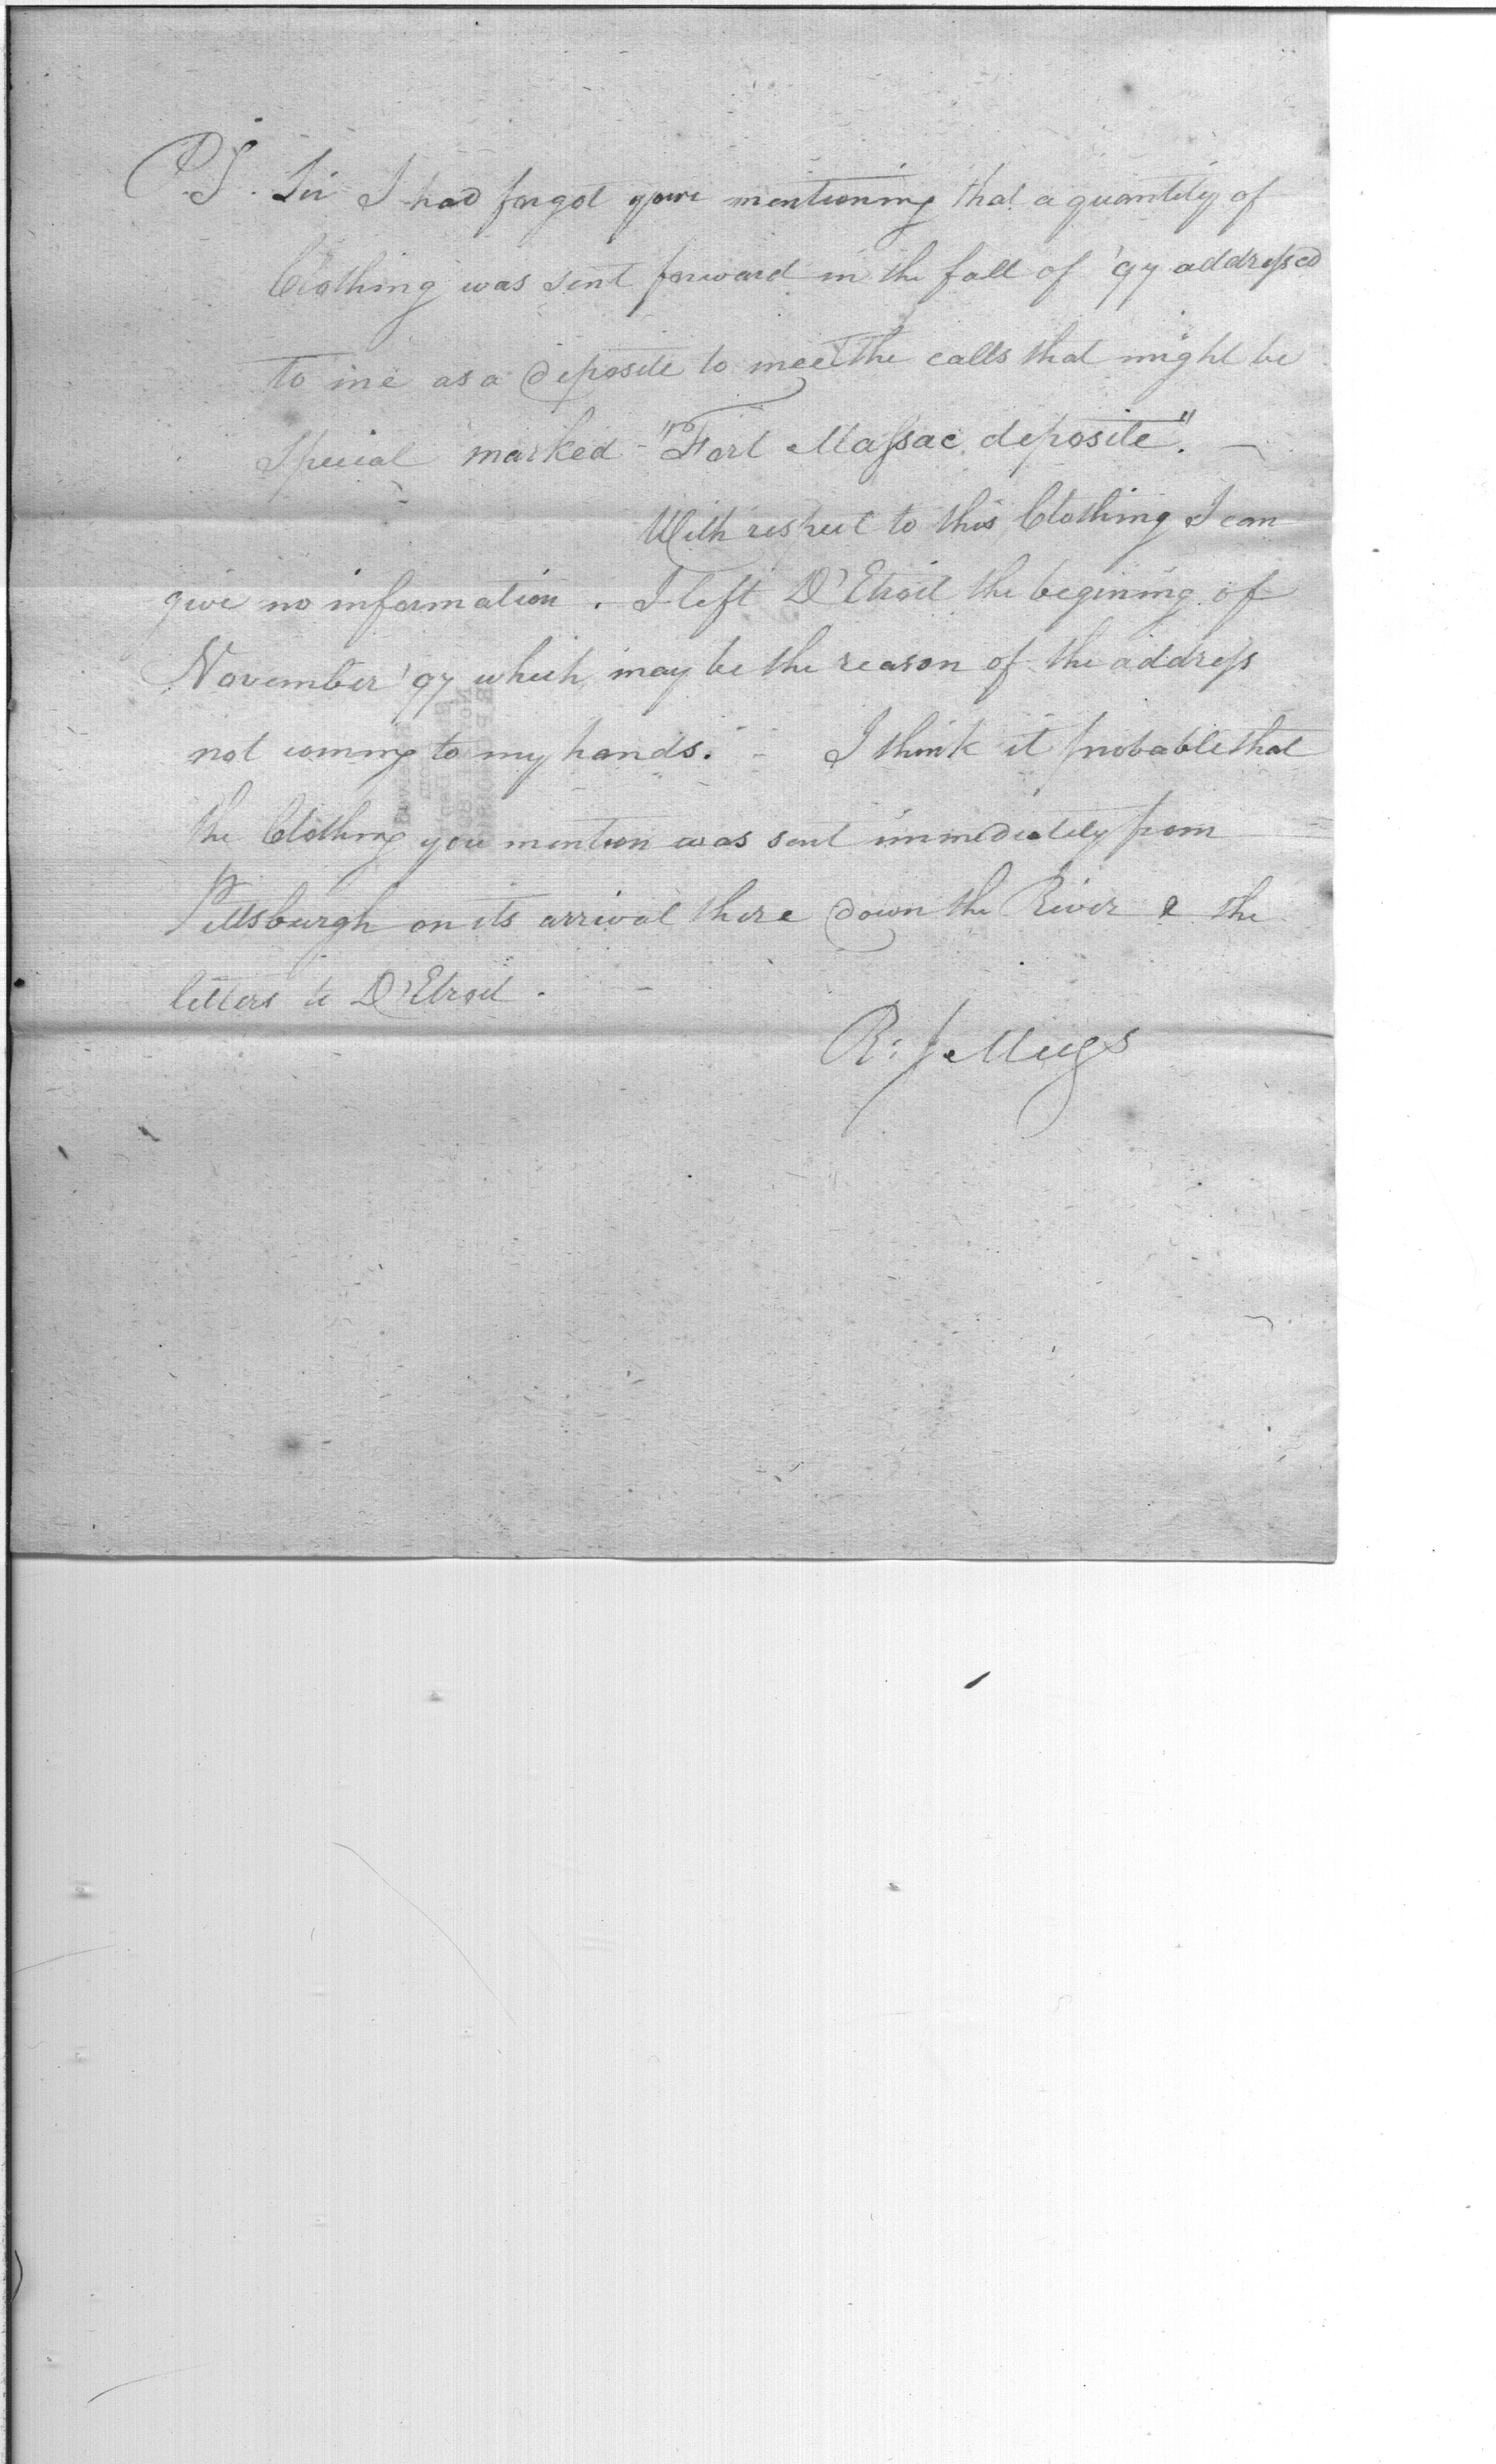 P.S. Sir I had forgot your mentioning that a quantity of
Clothing was sent forward in the fall of '97 addressed
to me as a deposite to meet the calls that might be
Special marked - "Fort Massac deposite". —
With respect to this Clothing I can
give no information. I left D'Etroit the begining of
November '97 which may be the reason of the address
not coming to my hands. - I think it probable that
the Clothing you mention was sent immediately from
Pittsburgh on its arrival there down the River & the
letters to D'Etroit. —
R: J. Meigs